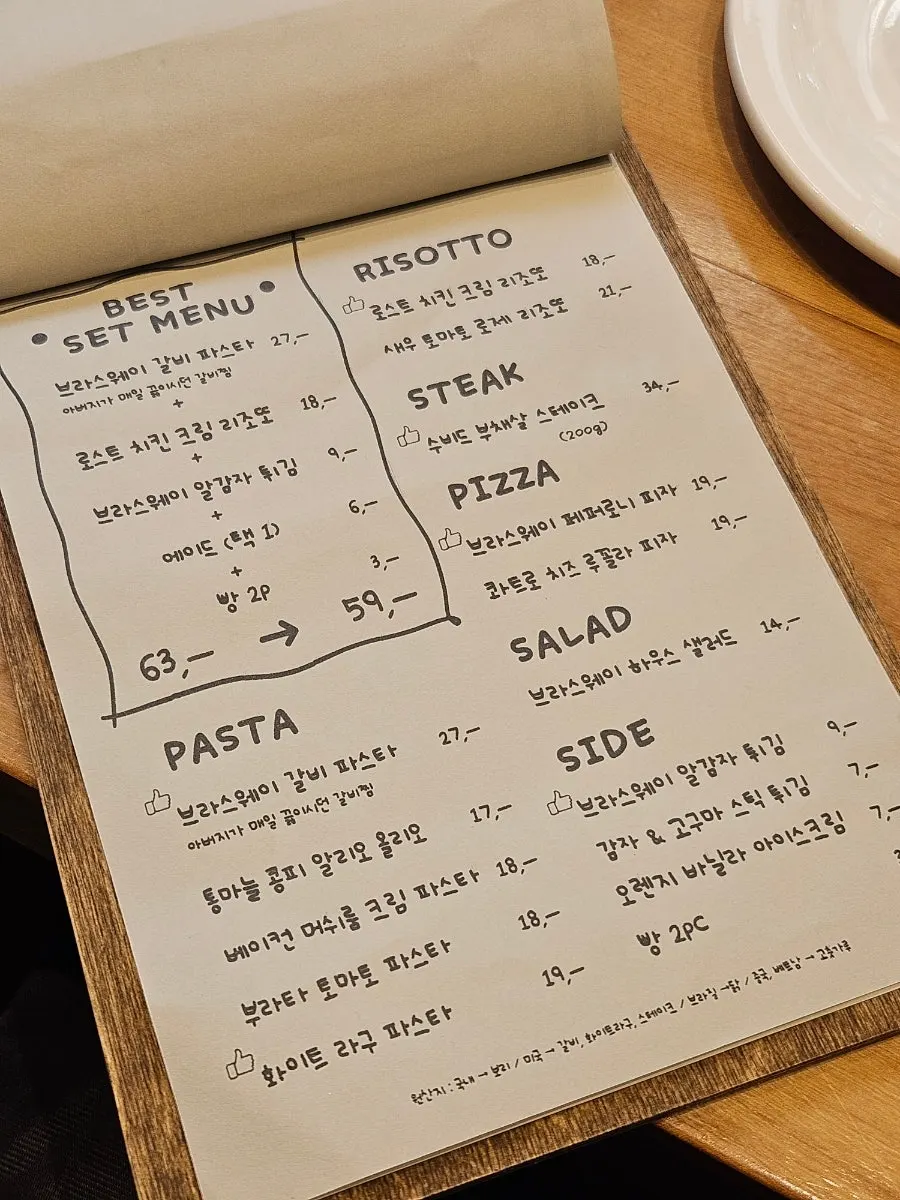 BEST
SET MENU
브라스웨이 갈비 파스타 27,-
아버지가 매일 끓이시던 갈비찜
+
로스트 치킨 크림 리조또 18,-
+
브라스웨이 알감자 튀김 9,-
+
에이드 (택 1) 6,-
+
빵 2P 3,-
63,- → 59,-
PASTA
브라스웨이 갈비 파스타 27,-
아버지가 매일 끓이시던 갈비찜
통마늘 콩피 알리오 올리오 17,-
베이컨 머쉬룸 크림 파스타 18,-
부라타 토마토 파스타 18,-
화이트 라구 파스타 19,-
RISOTTO
로스트 치킨 크림 리조또 18,-
새우 토마토 로제 리조또 21,-
STEAK
수비드 부채살 스테이크 34,-
(200g)
PIZZA
브라스웨이 페퍼로니 피자 19,-
콰트로 치즈 루꼴라 피자 19,-
SALAD
브라스웨이 하우스 샐러드 14,-
SIDE
브라스웨이 알감자 튀김 9,-
감자 & 고구마 스틱 튀김 7,-
오렌지 바닐라 아이스크림 7,-
빵 2PC
원산지 : 국내 → 보리 / 미국 → 갈비, 화이트라구, 스테이크 / 브라질 → 닭 / 중국, 베트남 → 고춧가루